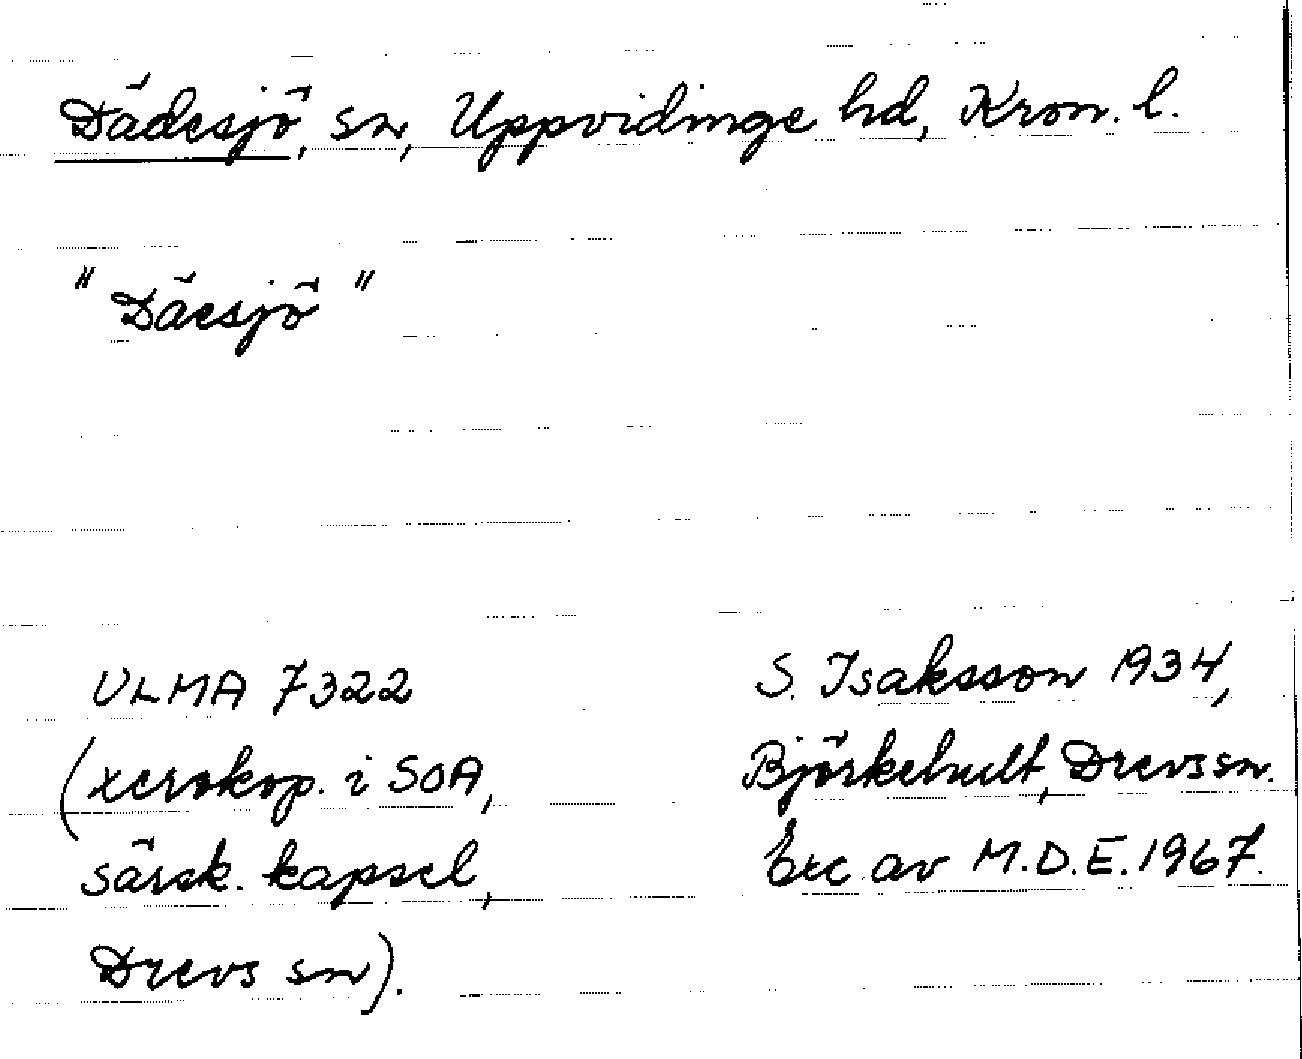 Dädesjö, sn, Uppvidinge hd, Kron. l.
"Däesjö"
ULMA 7322
(xerokop. i SOA,
särsk. kapsel,
Drevs sn).
S. Isaksson 1934,
Björkehult, Drevs sn.
exc av M.D.E. 1967.